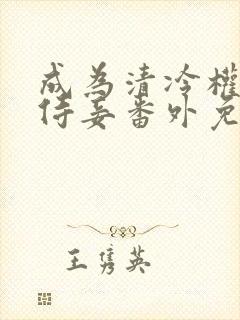 成为清冷權
侍妾番外免
王隽英